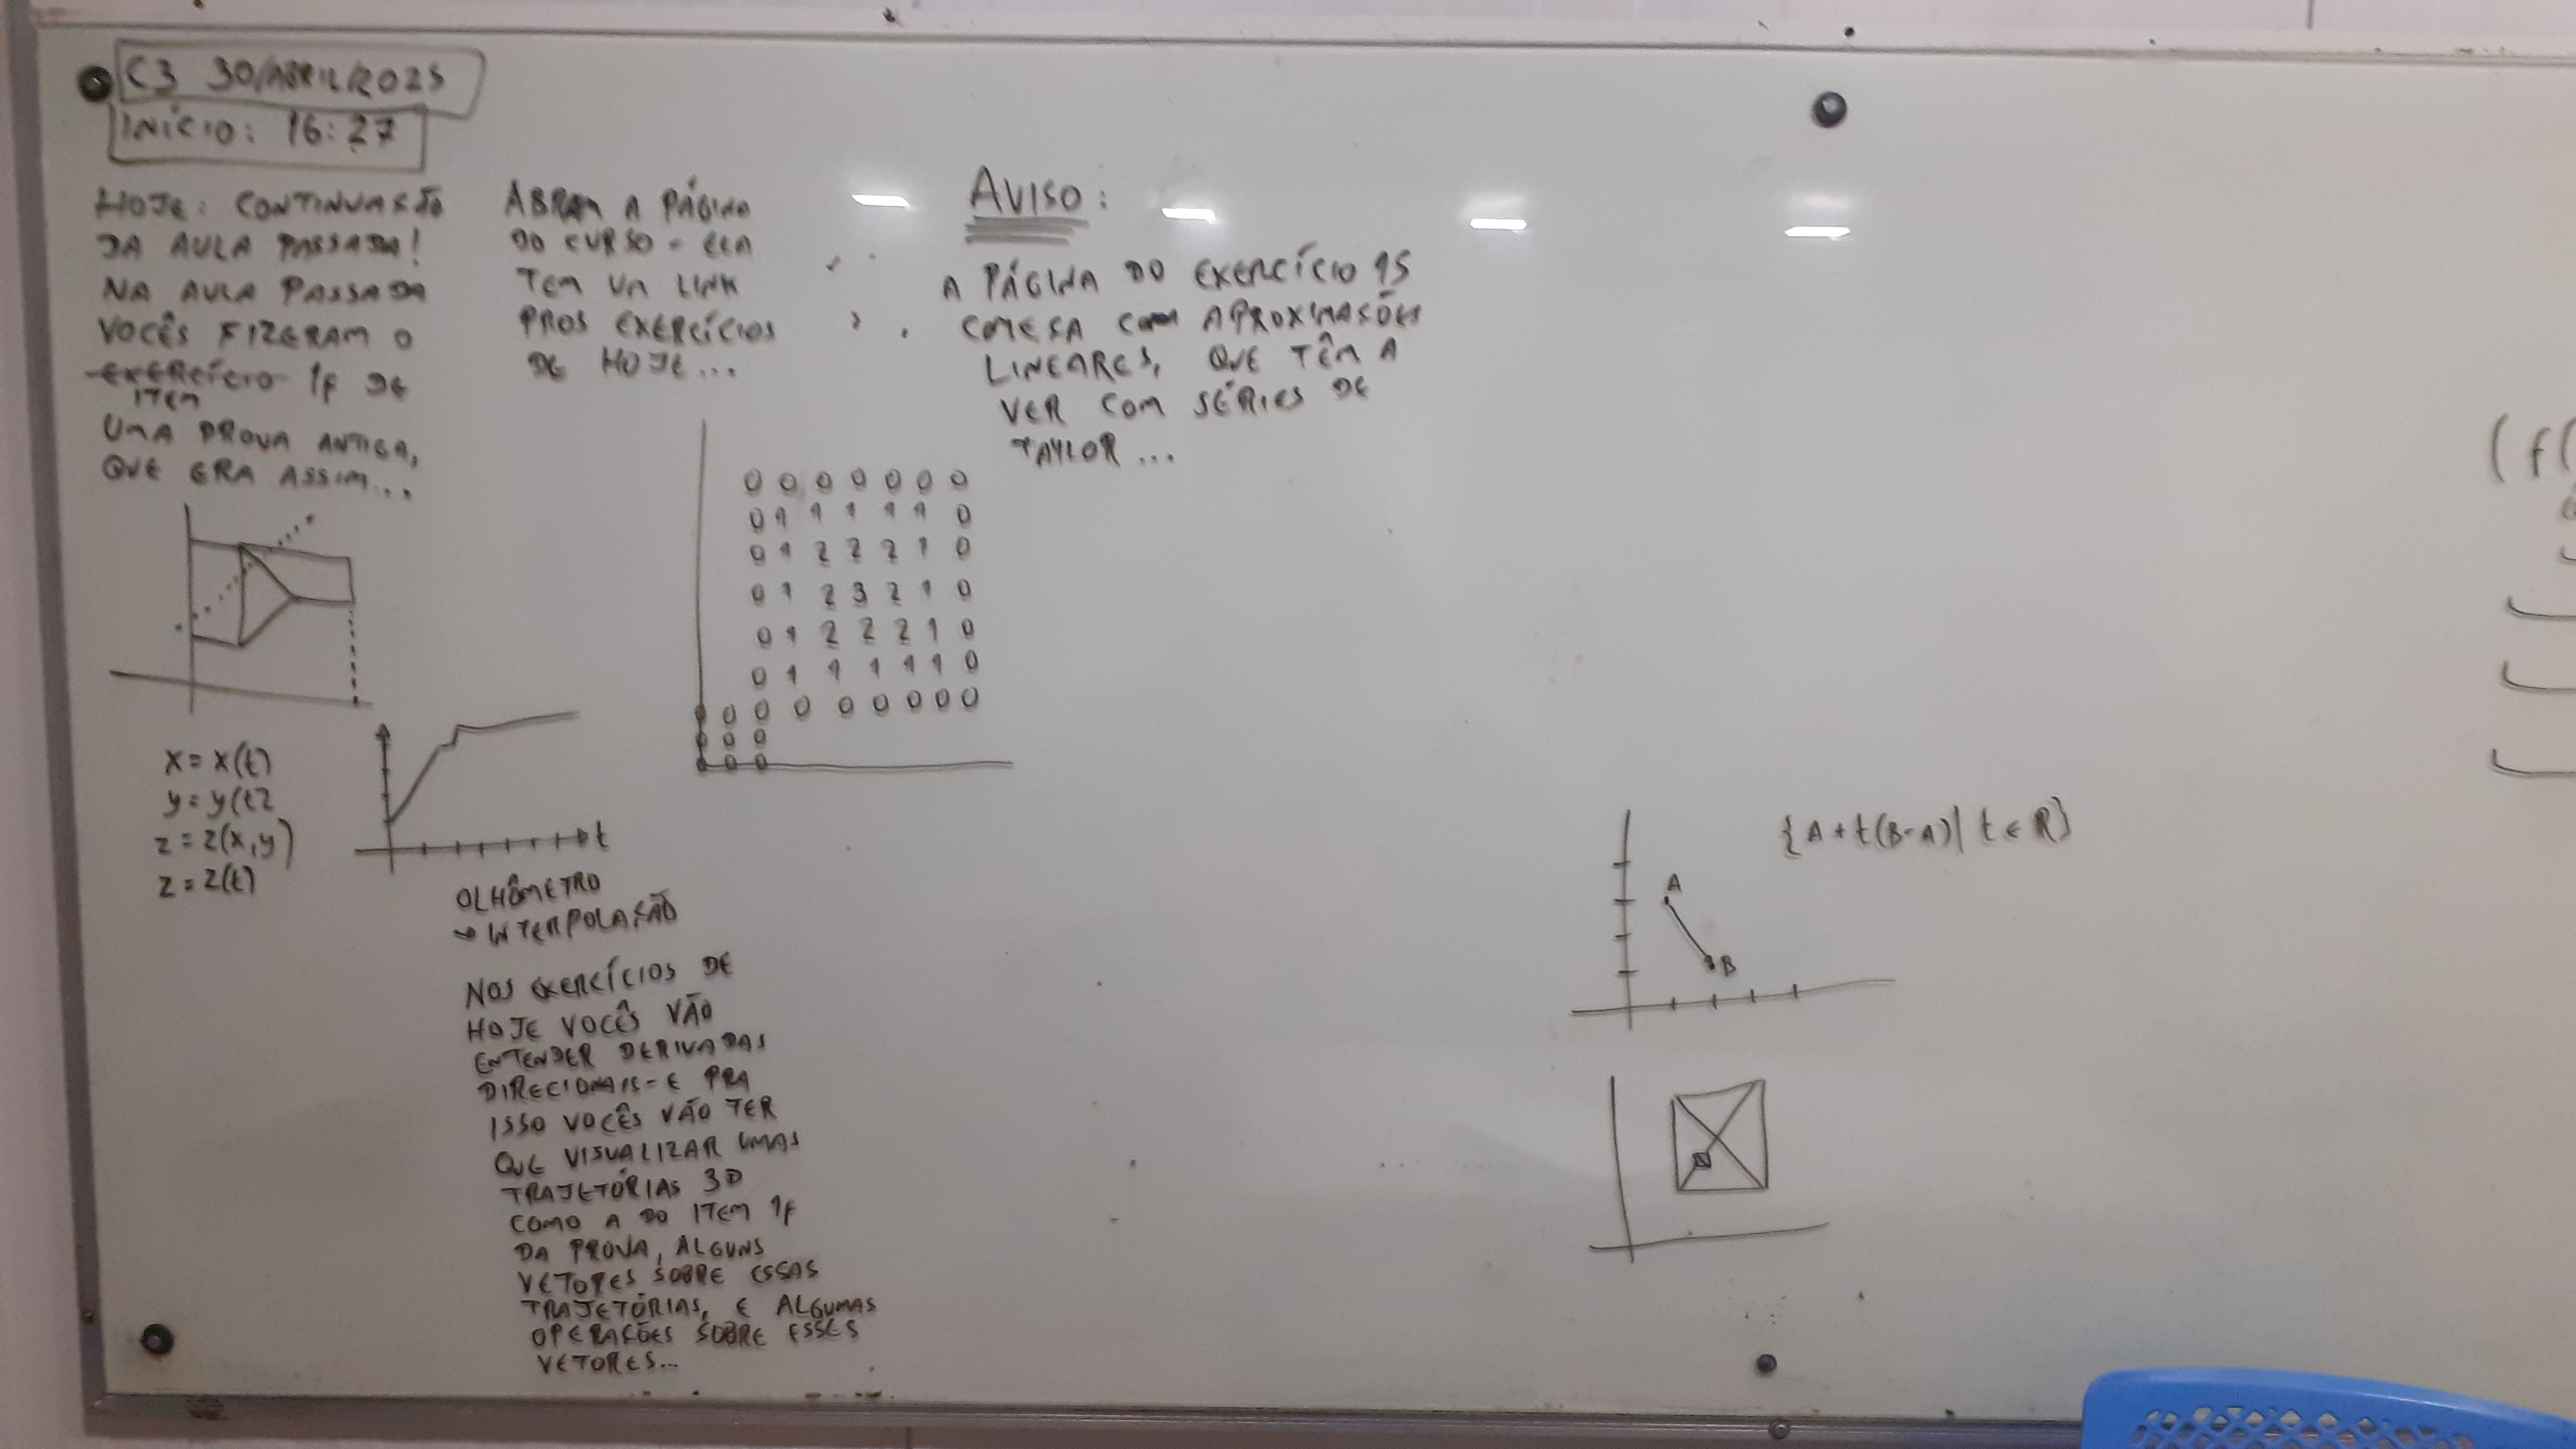 C3 30/ABRIL/2025
INÍCIO: 16:27
HOJE: CONTINUAÇÃO
DA AULA PASSADA!
NA AULA PASSADA
VOCÊS FIZERAM O
EXERCÍCIO 1F DE
ITEM
UMA PROVA ANTIGA,
QUE ERA ASSIM...
x = x(t)
y = y(t)
z = z(x,y)
z = z(t)
t
OLHÔMETRO
→ INTERPOLAÇÃO
NOS EXERCÍCIOS DE
HOJE VOCÊS VÃO
ENTENDER DERIVADAS
DIRECIONAIS - E PRA
ISSO VOCÊS VÃO TER
QUE VISUALIZAR UMAS
TRAJETÓRIAS 3D
COMO A DO ITEM 1F
DA PROVA, ALGUNS
VETORES SOBRE ESSAS
TRAJETÓRIAS, E ALGUMAS
OPERAÇÕES SOBRE ESSES
VETORES...
ABRAM A PÁGINA
DO CURSO - ELA
TEM UM LINK
PROS EXERCÍCIOS
DE HOJE...
0 0 0 0 0 0 0
0 1 1 1 1 1 0
0 1 2 2 2 1 0
0 1 2 3 2 1 0
0 1 2 2 2 1 0
0 1 1 1 1 1 0
0 0 0 0 0 0 0 0 0
0 0 0
0 0 0
AVISO:
A PÁGINA DO EXERCÍCIO 15
COMEÇA COM APROXIMAÇÕES
LINEARES, QUE TÊM A
VER COM SÉRIES DE
TAYLOR...
{A + t(B-A) | t ∈ R}
A
B
(f(